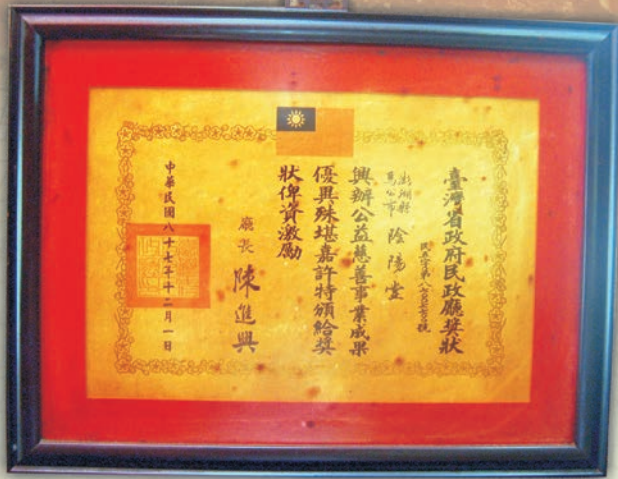 臺灣省政府民政廳獎狀
澎湖縣
馬公市
陰陽堂
興辦公益慈善事業成果
優異殊堪嘉許特頒給獎
狀俾資激勵
廳長 陳進興
中華民國八十七年十二月一日